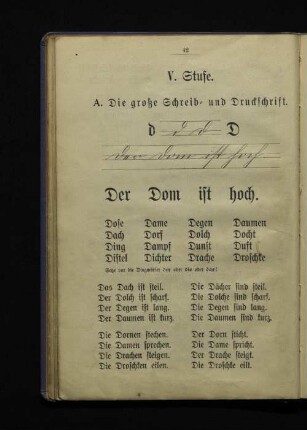 42
V. Stufe.
A. Die große Schreib- und Druckschrift.
d d D D
Der Dom ist hoch
Der Dom ist hoch.
Dose Dame Degen Daumen
Dach Dorf Dolch Docht
Ding Dampf Dunst Duft
Distel Dichter Drache Droschke
Das Dach ist steil. Die Dächer sind steil.
Der Dolch ist scharf. Die Dolche sind scharf.
Der Degen ist lang. Die Degen sind lang.
Der Daumen ist kurz. Die Daumen sind kurz.
Die Dornen stechen. Der Dorn sticht.
Die Damen sprechen. Die Dame spricht.
Die Drachen steigen. Der Drache steigt.
Die Droschken eilen. Die Droschke eilt.